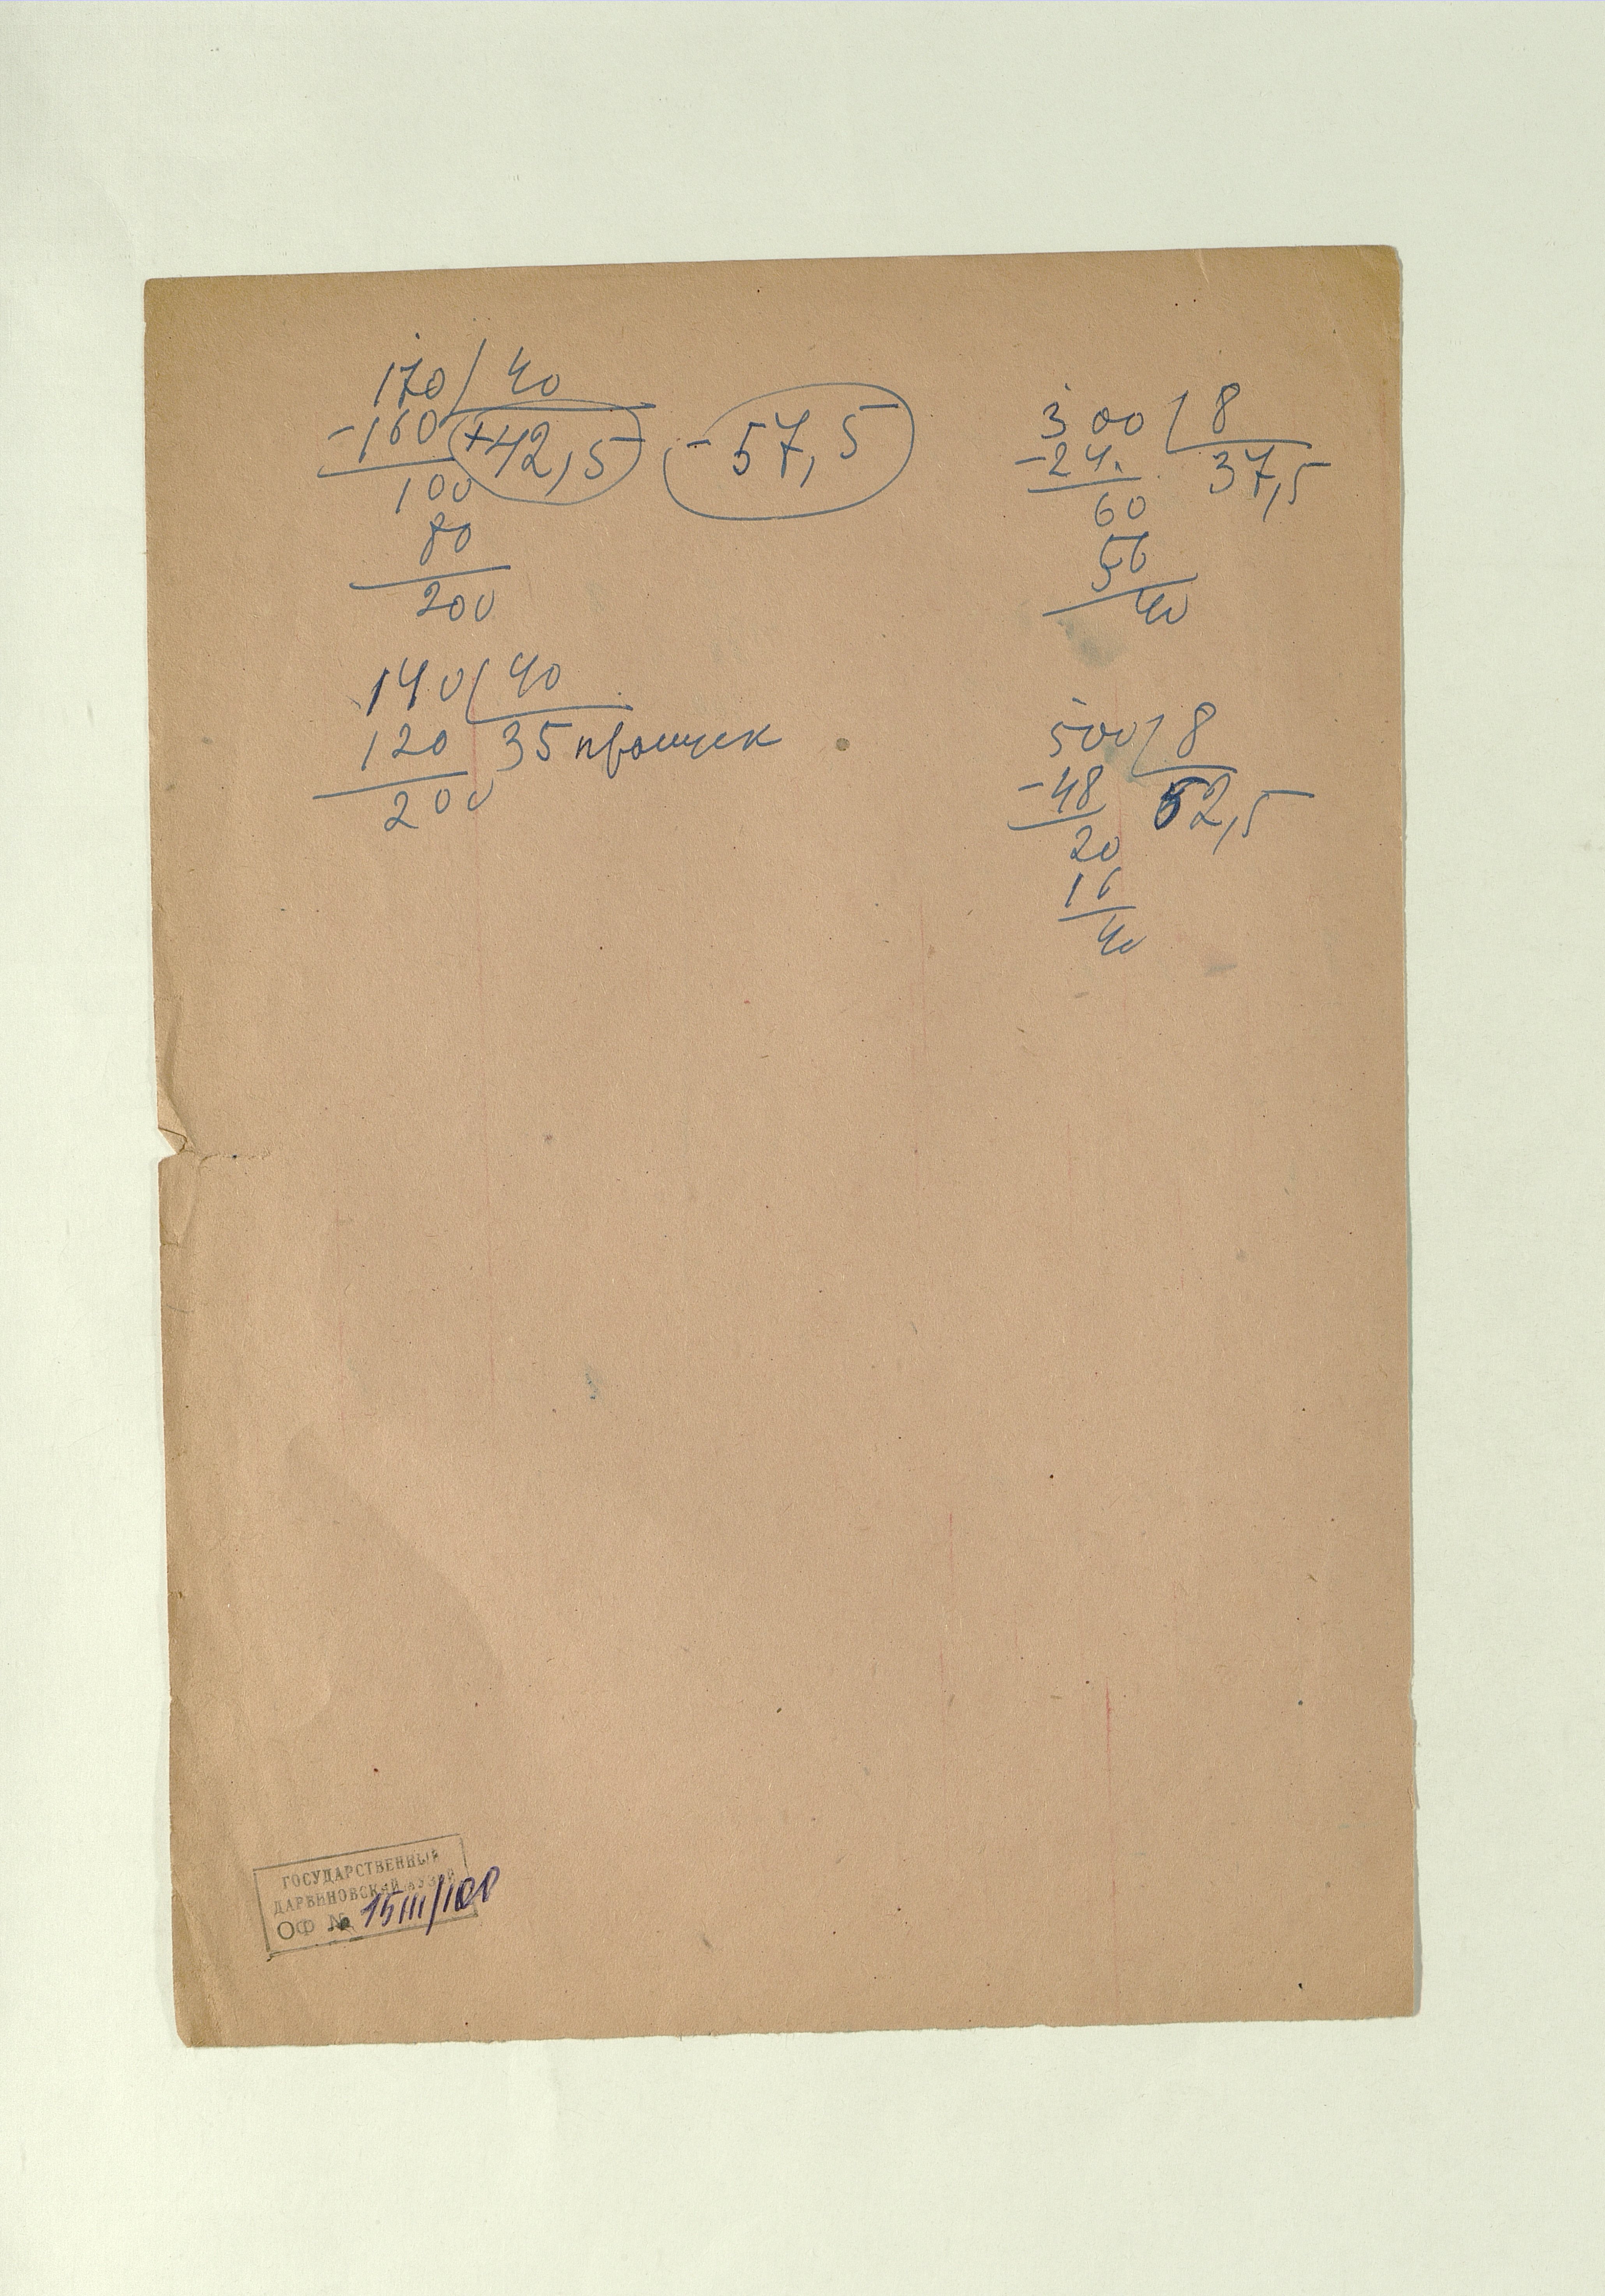 170 40
-160 +42,5 -57,5
100
80
200
140 40
120 35
200
300 8
-24 37,5
60
56
40
500 8
-48 62,5
20
16
40
ГОСУДАРСТВЕННЫЙ
ДАРВИНОВСКИЙ МУЗЕЙ
ОФ № 15111/108